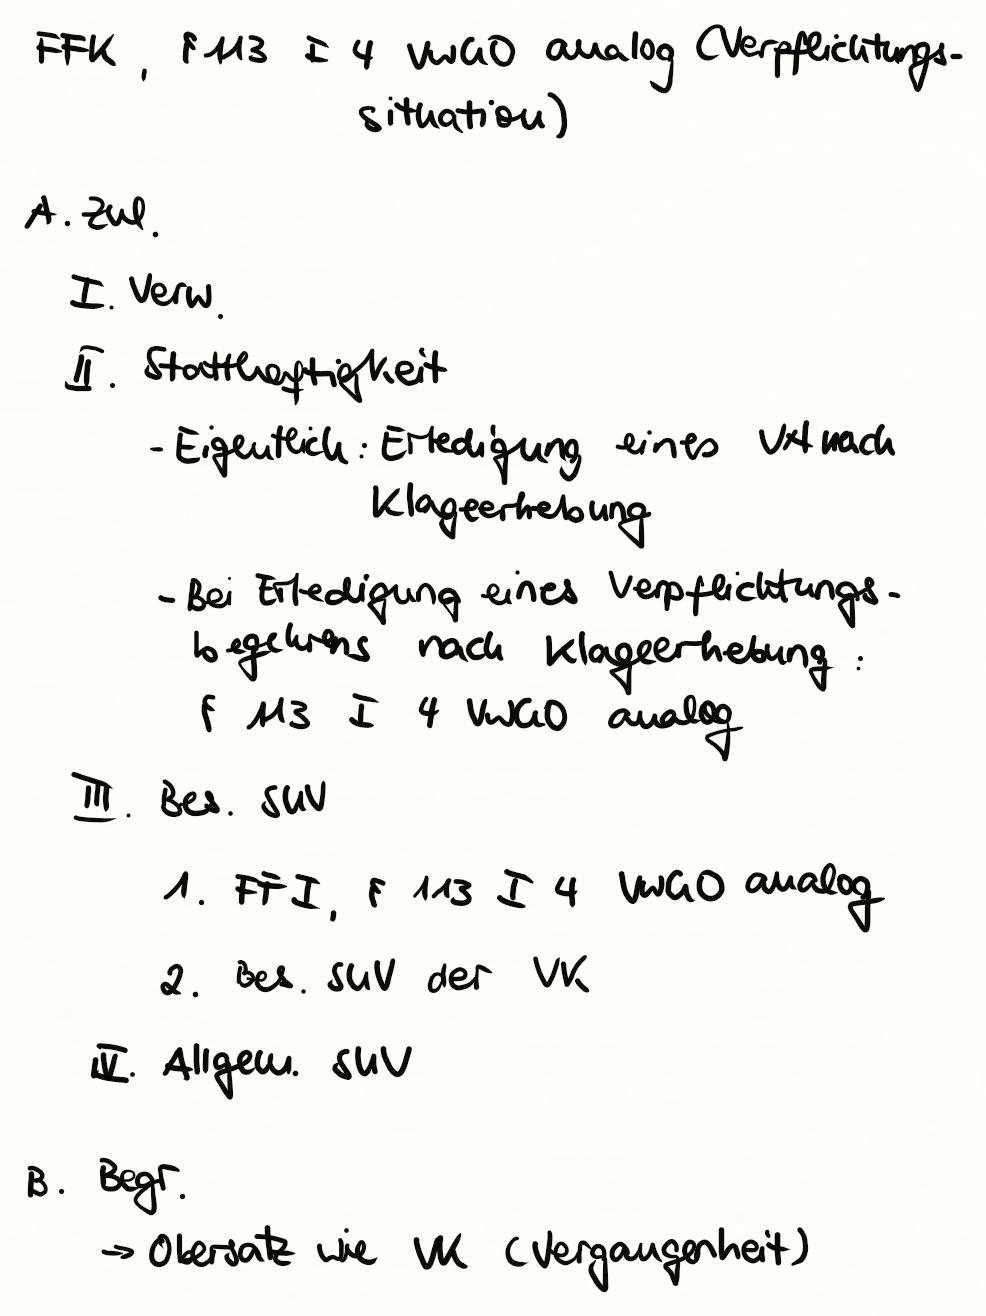 FFK, § 113 I 4 VwGO analog (Verpflichtungs-
situation)
A. Zul.
I. Verw.
II. Statthaftigkeit
- Eigentlich: Erledigung eines VA nach
Klageerhebung
- Bei Erledigung eines Verpflichtungs-
begehrens nach Klageerhebung:
§ 113 I 4 VwGO analog
III. Bes. SUV
1. FFI, § 113 I 4 VwGO analog
2. Bes. SUV der VK
IV. Allgem. SUV
B. Begr.
→ Obersatz wie VK (Vergangenheit)